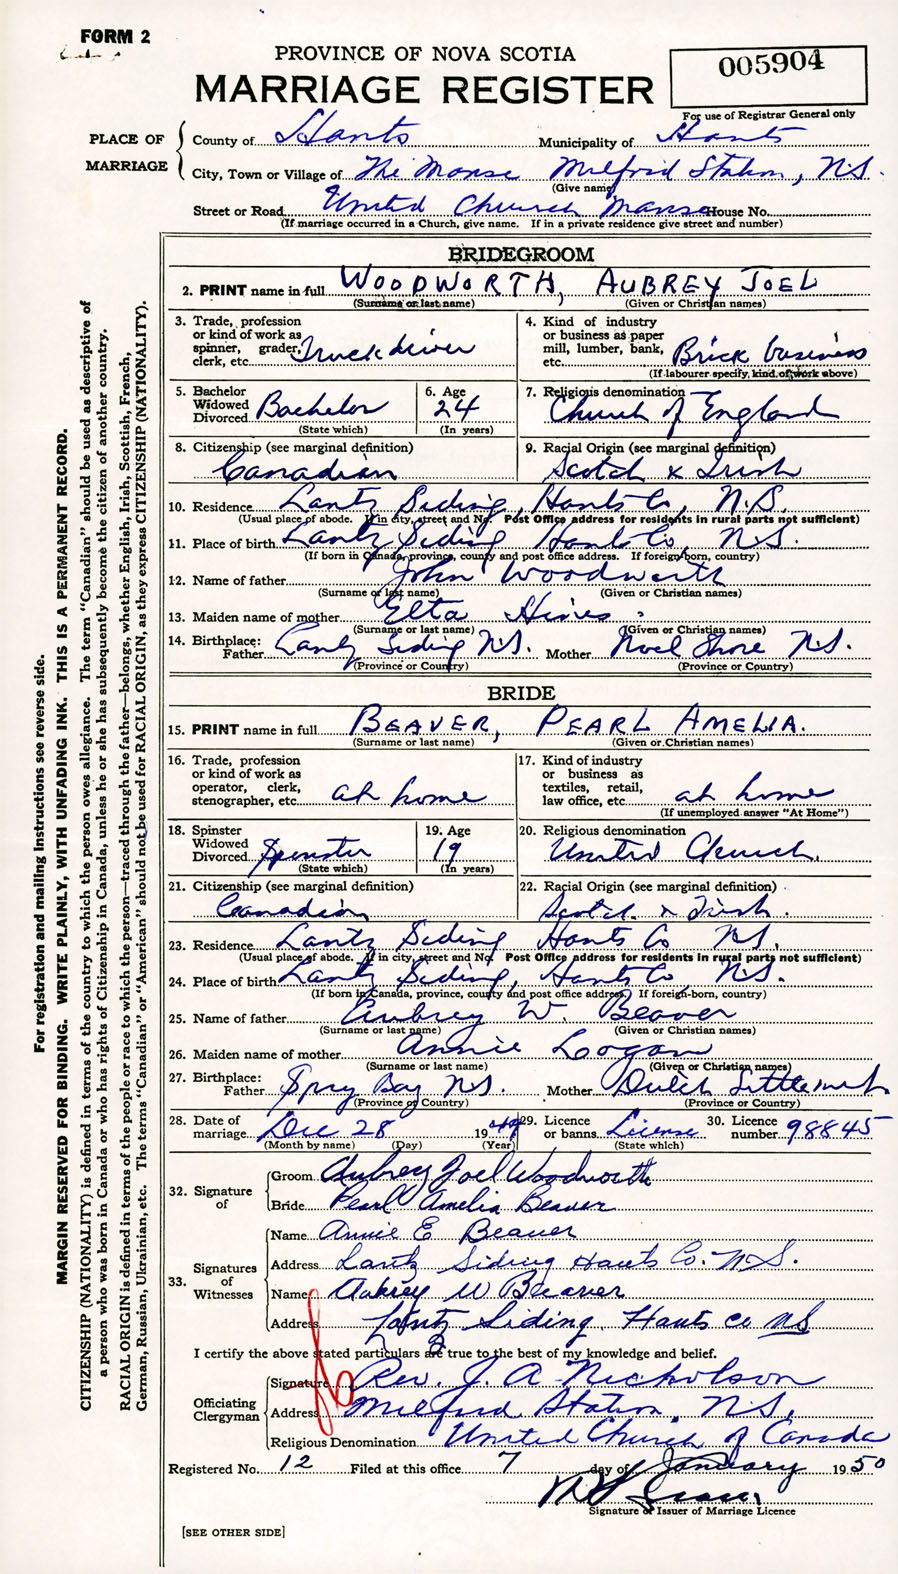 FORM 2
PROVINCE OF NOVA SCOTIA
MARRIAGE REGISTER
005904
For use of Registrar General only
PLACE OF MARRIAGE
County of Hants Municipality of Hants
City, Town or Village of The Manse Milford Station, N.S.
(Give name)
Street or Road United Church Manse House No.
(If marriage occurred in a Church, give name. If in a private residence give street and number)
BRIDEGROOM
2. PRINT name in full WOODWORTH, AUBREY JOEL
(Surname or last name) (Given or Christian names)
3. Trade, profession or kind of work as spinner, grader, clerk, etc. Truck driver
4. Kind of industry or business as paper mill, lumber, bank, etc. Brick business
(If labourer specify, kind of work above)
5. Bachelor Widowed Divorced Bachelor
(State which)
6. Age 24
(In years)
7. Religious denomination Church of England
8. Citizenship (see marginal definition) Canadian
9. Racial Origin (see marginal definition) Scotch & Irish
10. Residence Lantz Siding, Hants Co, N.S.
(Usual place of abode. If in city, street and No. Post Office address for residents in rural parts not sufficient)
11. Place of birth Lantz Siding Hants Co N.S.
(If born in Canada, province, county and post office address. If foreign born, country)
12. Name of father John Woodworth
(Surname or last name) (Given or Christian names)
13. Maiden name of mother Elta Hines
(Surname or last name) (Given or Christian names)
14. Birthplace: Father Lantz Siding N.S. Mother Noel Shore N.S.
(Province or Country) (Province or Country)
BRIDE
15. PRINT name in full BEAVER, PEARL AMELIA.
(Surname or last name) (Given or Christian names)
16. Trade, profession or kind of work as operator, clerk, stenographer, etc. at home
17. Kind of industry or business as textiles, retail, law office, etc. at home
(If unemployed answer "At Home")
18. Spinster Widowed Divorced Spinster
(State which)
19. Age 19
(In years)
20. Religious denomination United Church.
21. Citizenship (see marginal definition) Canadian
22. Racial Origin (see marginal definition) Scotch & Irish.
23. Residence Lantz Siding Hants Co N.S.
(Usual place of abode. If in city, street and No. Post Office address for residents in rural parts not sufficient)
24. Place of birth Lantz Siding, Hants Co, N.S.
(If born in Canada, province, county and post office address. If foreign-born, country)
25. Name of father Aubrey W. Beaver
(Surname or last name) (Given or Christian names)
26. Maiden name of mother Annie Logan
(Surname or last name) (Given or Christian names)
27. Birthplace: Father Spry Bay N.S. Mother Dutch Settlement
(Province or Country) (Province or Country)
28. Date of marriage Dec 28 1949
(Month by name) (Day) (Year)
29. Licence or banns License
(State which)
30. Licence number 98845
32. Signature of
Groom Aubrey Joel Woodworth
Bride Pearl Amelia Beaver
33. Signatures of Witnesses
Name Annie E Beaver
Address Lantz Siding Hants Co. N.S.
Name Aubrey W Beaver
Address Lantz Siding Hants co NS
I certify the above stated particulars are true to the best of my knowledge and belief.
Officiating Clergyman
Signature Rev. J. A. Nicholson
Address Milford Station, N.S.
Religious Denomination United Church of Canada
Registered No. 12 Filed at this office 7 day of January 1950
Signature of Issuer of Marriage Licence
[SEE OTHER SIDE]
For registration and mailing instructions see reverse side.
MARGIN RESERVED FOR BINDING. WRITE PLAINLY, WITH UNFADING INK. THIS IS A PERMANENT RECORD.
CITIZENSHIP (NATIONALITY) is defined in terms of the country to which the person owes allegiance. The term "Canadian" should be used as descriptive of
a person who was born in Canada or who has rights of Citizenship in Canada, unless he or she has subsequently become the citizen of another country.
RACIAL ORIGIN is defined in terms of the people or race to which the person—traced through the father—belongs, whether English, Irish, Scottish, French,
German, Russian, Ukrainian, etc. The terms "Canadian" or "American" should not be used for RACIAL ORIGIN, as they express CITIZENSHIP (NATIONALITY).